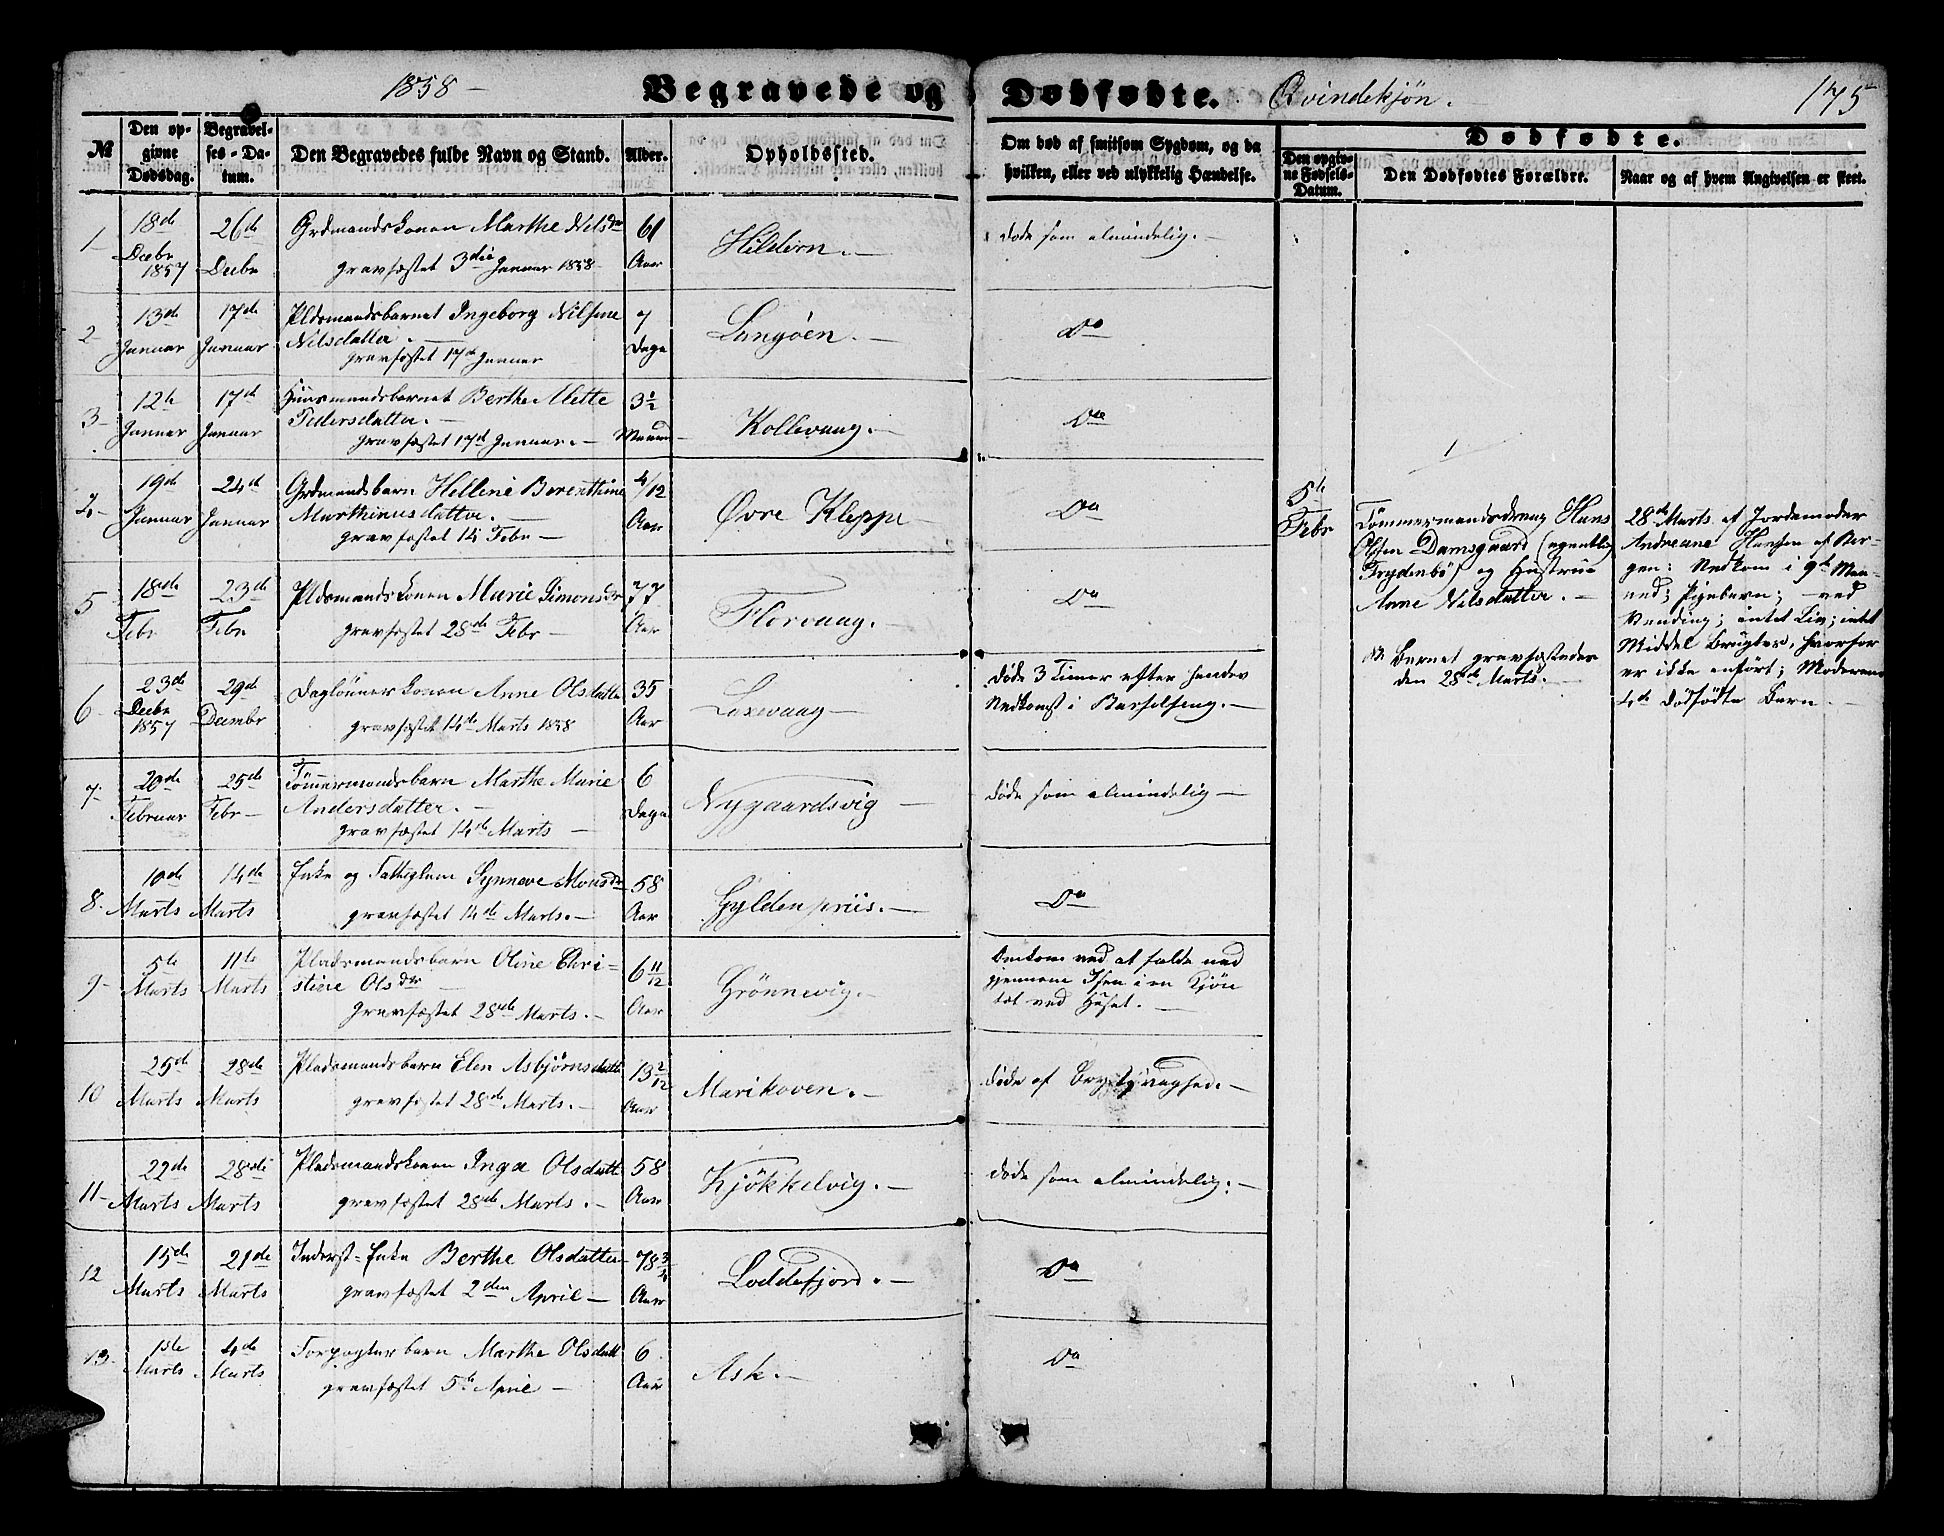 1858 - Begravede og Dødfødte. Qvindekjøn. 175
№ Den opgivne Dødsdag. Begravelses-Datum. Den Begravedes fulde Navn og Stand. Alder. Opholdssted. Om død af smitsom Sygdom, og da hvilken, eller ved ulykkelig Hændelse.
Dødfødte.
Den opgivne Fødsels-Datum. Den Dødfødtes Forældre. Naar og af hvem Angivelsen er skeet.
1- 18de Decbr 1857 26de Decbr Grdmandskonen Marthe Nilsdr 61 Aar Hildern. - døde som almindelig. -
gravfæstet 3die Januar 1858
2- 13de Januar 17de Januar Pldsmandsbarnet Ingeborg Nilsine 7 Dage Langöen. - Do
Nilsdatter. -
gravfæstet 17de Januar
3- 12te Januar 17de Januar Huusmandsbarnet Berthe Mette 3½ Maaned Kollevaag. - Do
Pedersdatter. -
gravfæstet 17de Januar. -
4- 19de Januar 24de Januar Grdmandsbarn Hellene Berenthine 4/12 Aar Øvre Kleppe - Do
Marthinusdatter. -
gravfæstet 14 Febr -
5 18de Febr 23de Febr Pldsmandskonen Marie Simonsdr 77 Aar Florvaag. - Do
gravfæstet 28de Febr -
6 23de Decbr 1857 29de Decembr Daglönnerkonen Anne Olsdatter 35 Aar Laxevaag - døde 3 Timer efter hendes
gravfæstet 14de Marts 1858 Nedkomst i Barselseng. -
7- 20de Februar 25de Febr - Tömmermandsbarn Marthe Marie 6 Dage Nygaardsvig - døde som almindelig -
Andersdatter. -
gravfæstet 14de Marts -
8- 10de Marts 14de Marts Enke og Fattiglem Synneve Monsdr 58 Aar Gyldenpriis. - Do
gravfæstet 14de Marts. -
9- 5te Marts 11te Marts Pladsmandsbarn Oline Chri= 6 11/12 Aar Grönnevig. - Omkom ved at falde ned
stine Olsdr - gjennem Isen i en Kjön
gravfæstet 28de Marts. - tæt ved Huset. -
10 25de Marts 28de Marts Pladsmandsbarn Elen Asbjörnsdatter 13 2/12 Aar Marikoven. - døde af Brystsvaghed. -
gravfæstet 28de Marts. -
11- 22de Marts 28de Marts Pladsmandskonen Inga Olsdatter 58 Aar Kjökkelvig. - døde som almindelig. -
gravfæstet 28de Marts. -
12 15de Marts 21de Marts Inderst=Enke Berthe Olsdatter 78 3/4 Aar Loddefjord. - Do
gravfæstet 2den April -
13- 1ste Marts 4de Marts Forpagterbarn Marthe Olsdatt 6 Aar Ask. - Do
gravfæstet 5te April -
1
5te Febr
Tömmermandsdreng Hans
Olsen Damsgaard (egentlig
Frydenbö) og Hustrue
Anne Nilsdatter. -
NB Barnet gravfæstedes
den 28de Marts. -
28de Marts af Jordemoder
Andreane Hansen af Ber-
gen: Nedkom i 9de Maa-
ned; Pigebarn; - ved
Vending; intet Liv; intet
Middel brugtes, hvorfor
er ikke anført; Moderens
4de dødfödte Barn. -